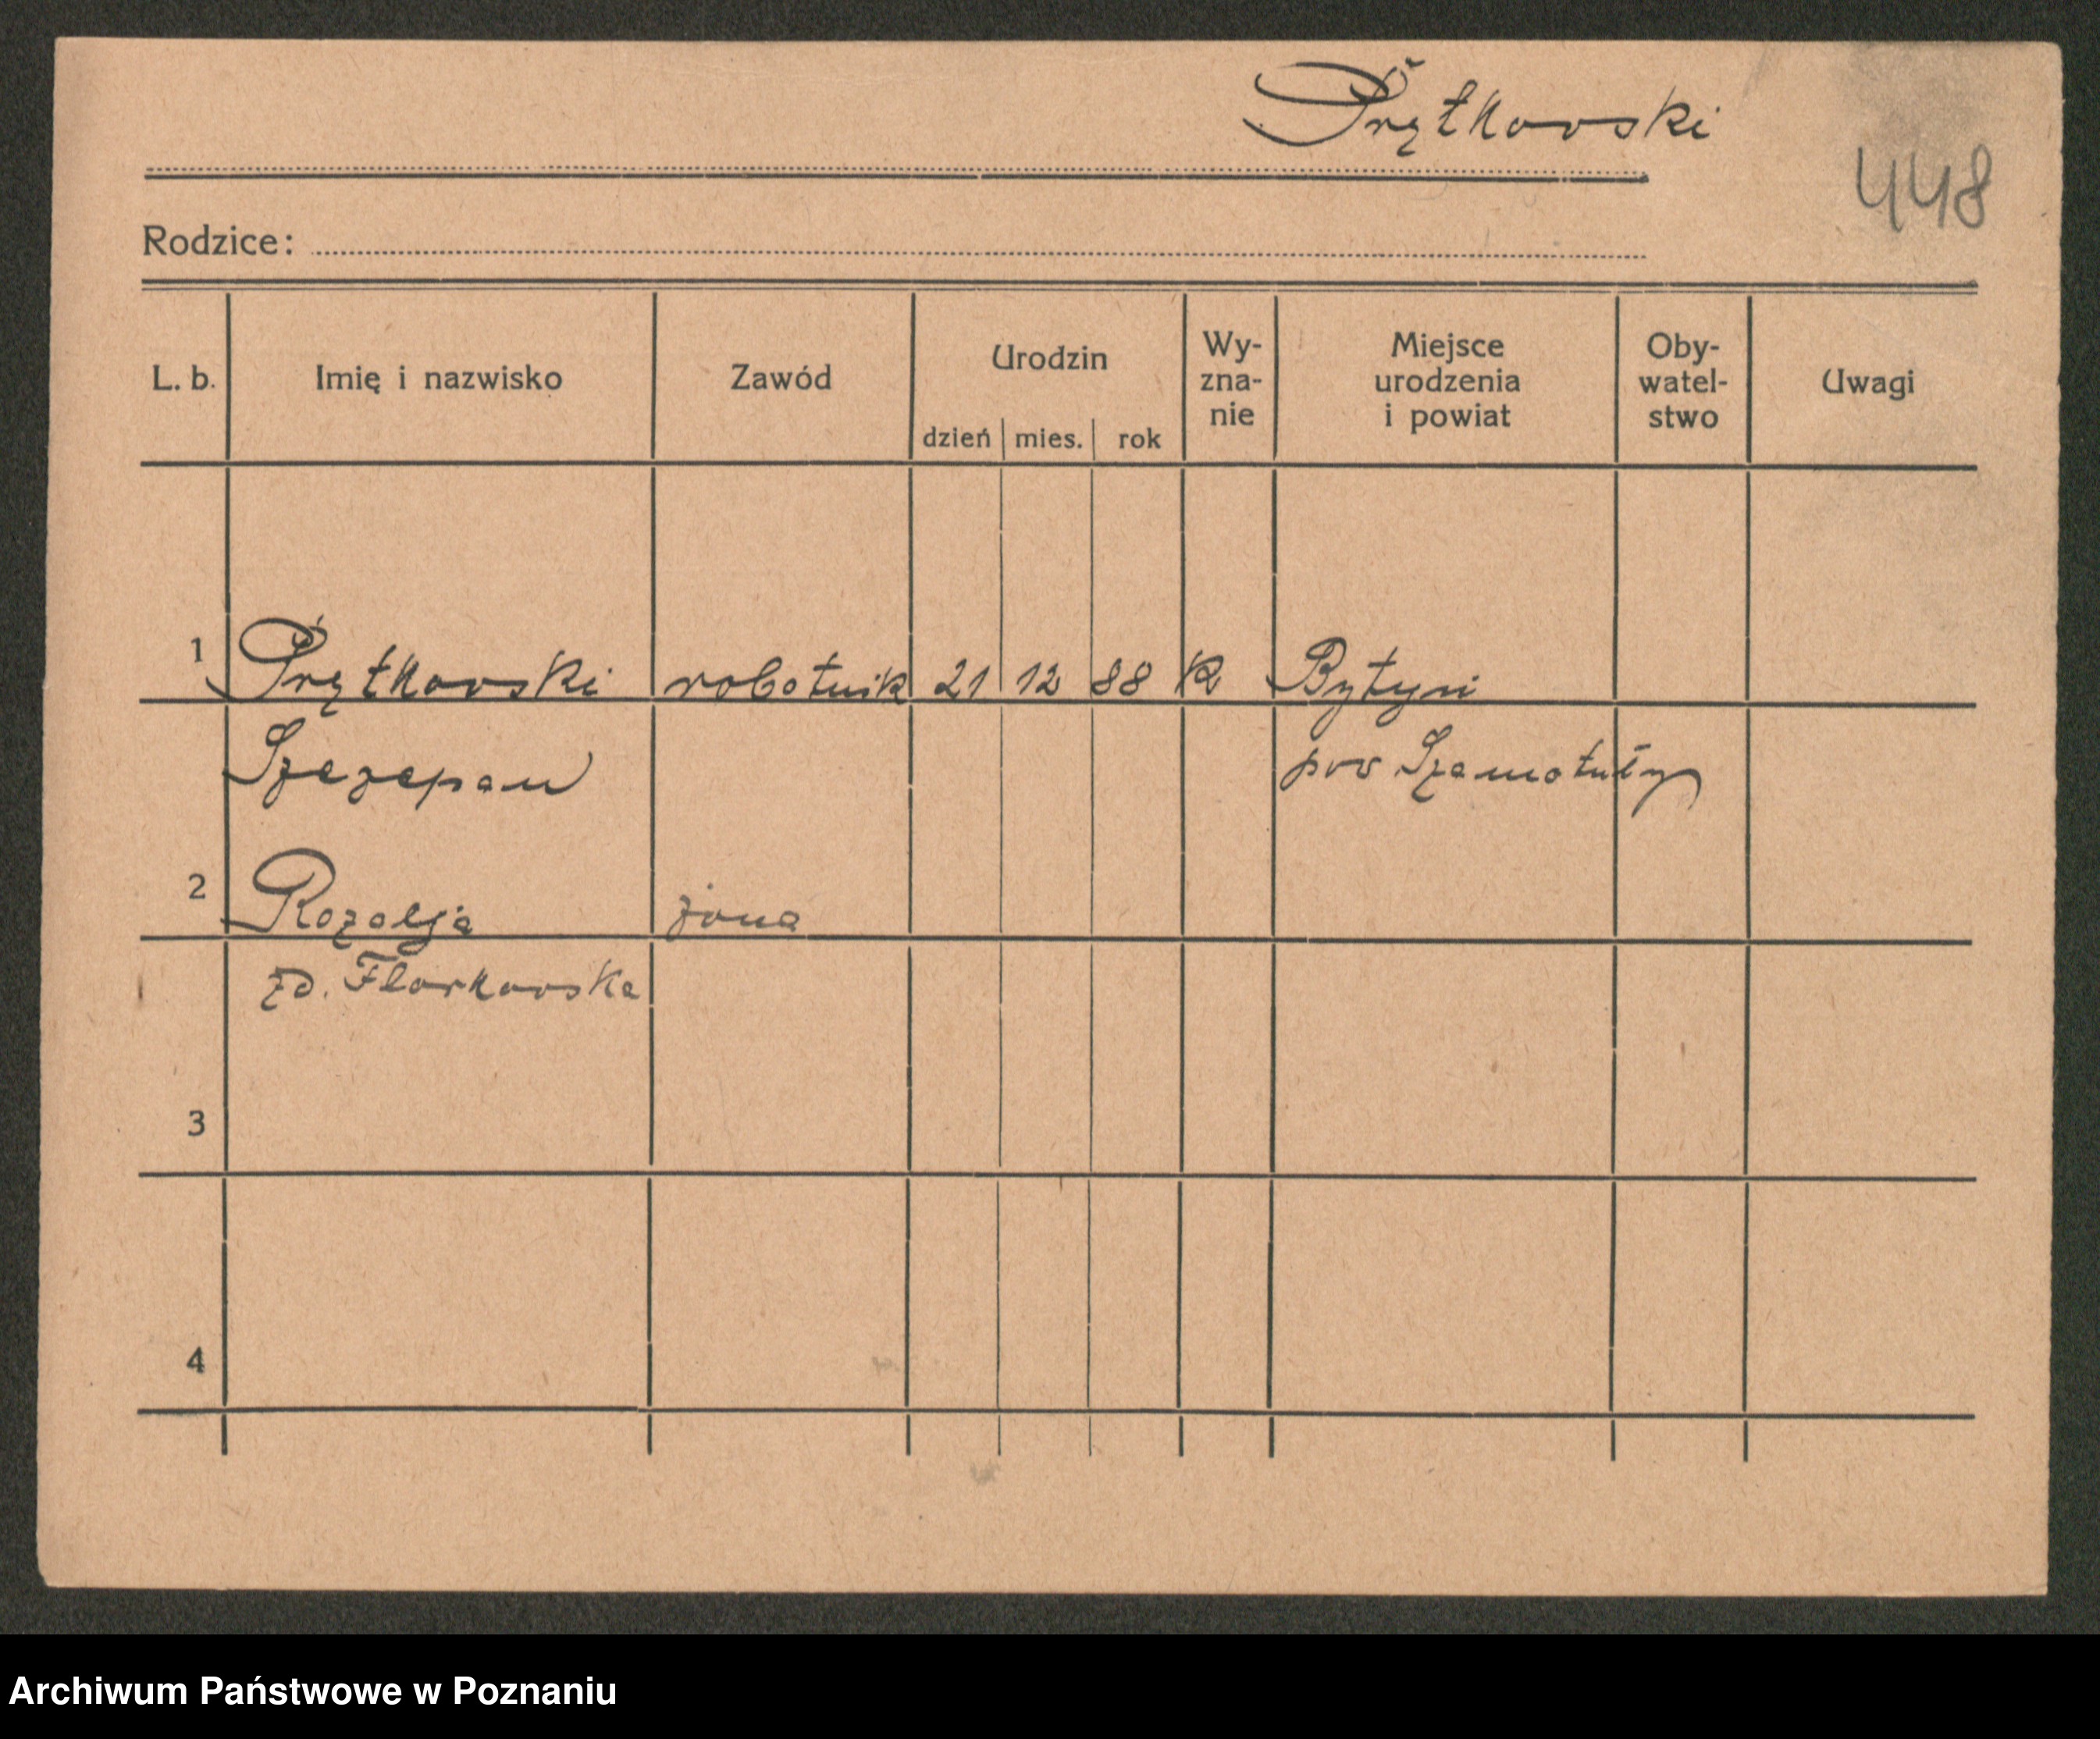 Prętkowski
448
Rodzice:
L. b. Imię i nazwisko Zawód Urodzin dzień mies. rok Wy-zna-nie Miejsce urodzenia i powiat Oby-watel-stwo Uwagi
1 Prętkowski robotnik 21 12 88 K Bytyni
Szczepan pow Szamotuły
2 Rozalja żona
zd. Florkowska
3
4
Archiwum Państwowe w Poznaniu